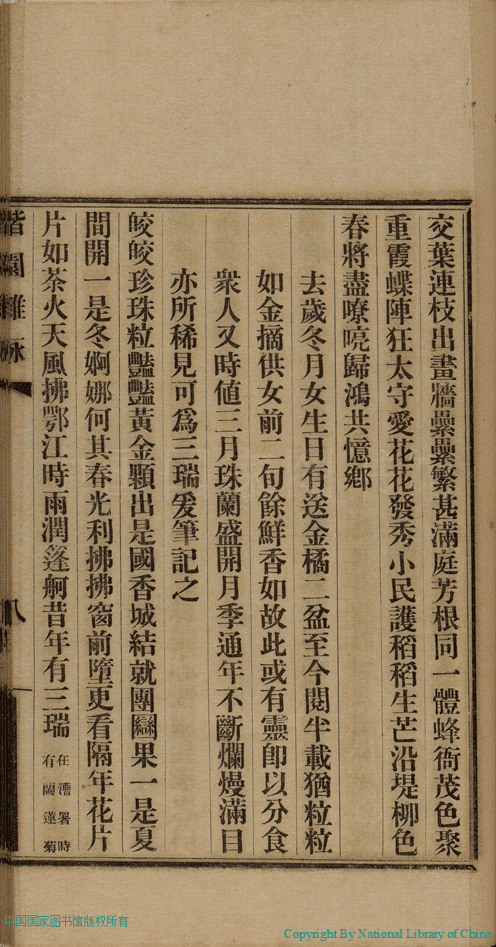 交葉連枝出畫牆纍纍繁甚滿庭芳根同一體蜂衙茂色聚
重霞蝶陣狂太守愛花花發秀小民護稻稻生芒沿堤柳色
春將盡嘹喨歸鴻共憶鄉
去歲冬月女生日有送金橘二盆至今閱半載猶粒粒
如金摘供女前二旬餘鮮香如故此或有靈卽以分食
衆人又時值三月珠蘭盛開月季通年不斷爛熳滿目
亦所稀見可爲三瑞爰筆記之
皎皎珍珠粒豔豔黃金顆出是國香城結就團圝果一是夏
間開一是冬婀娜何其春光利拂拂窗前墮更看隔年花片
片如荼火天風拂鄂江時雨潤篷舸昔年有三瑞
在漕署時
有蘭蓮菊
園雜詠
八
中国国家图书馆版权所有
Copyright By National Library of China